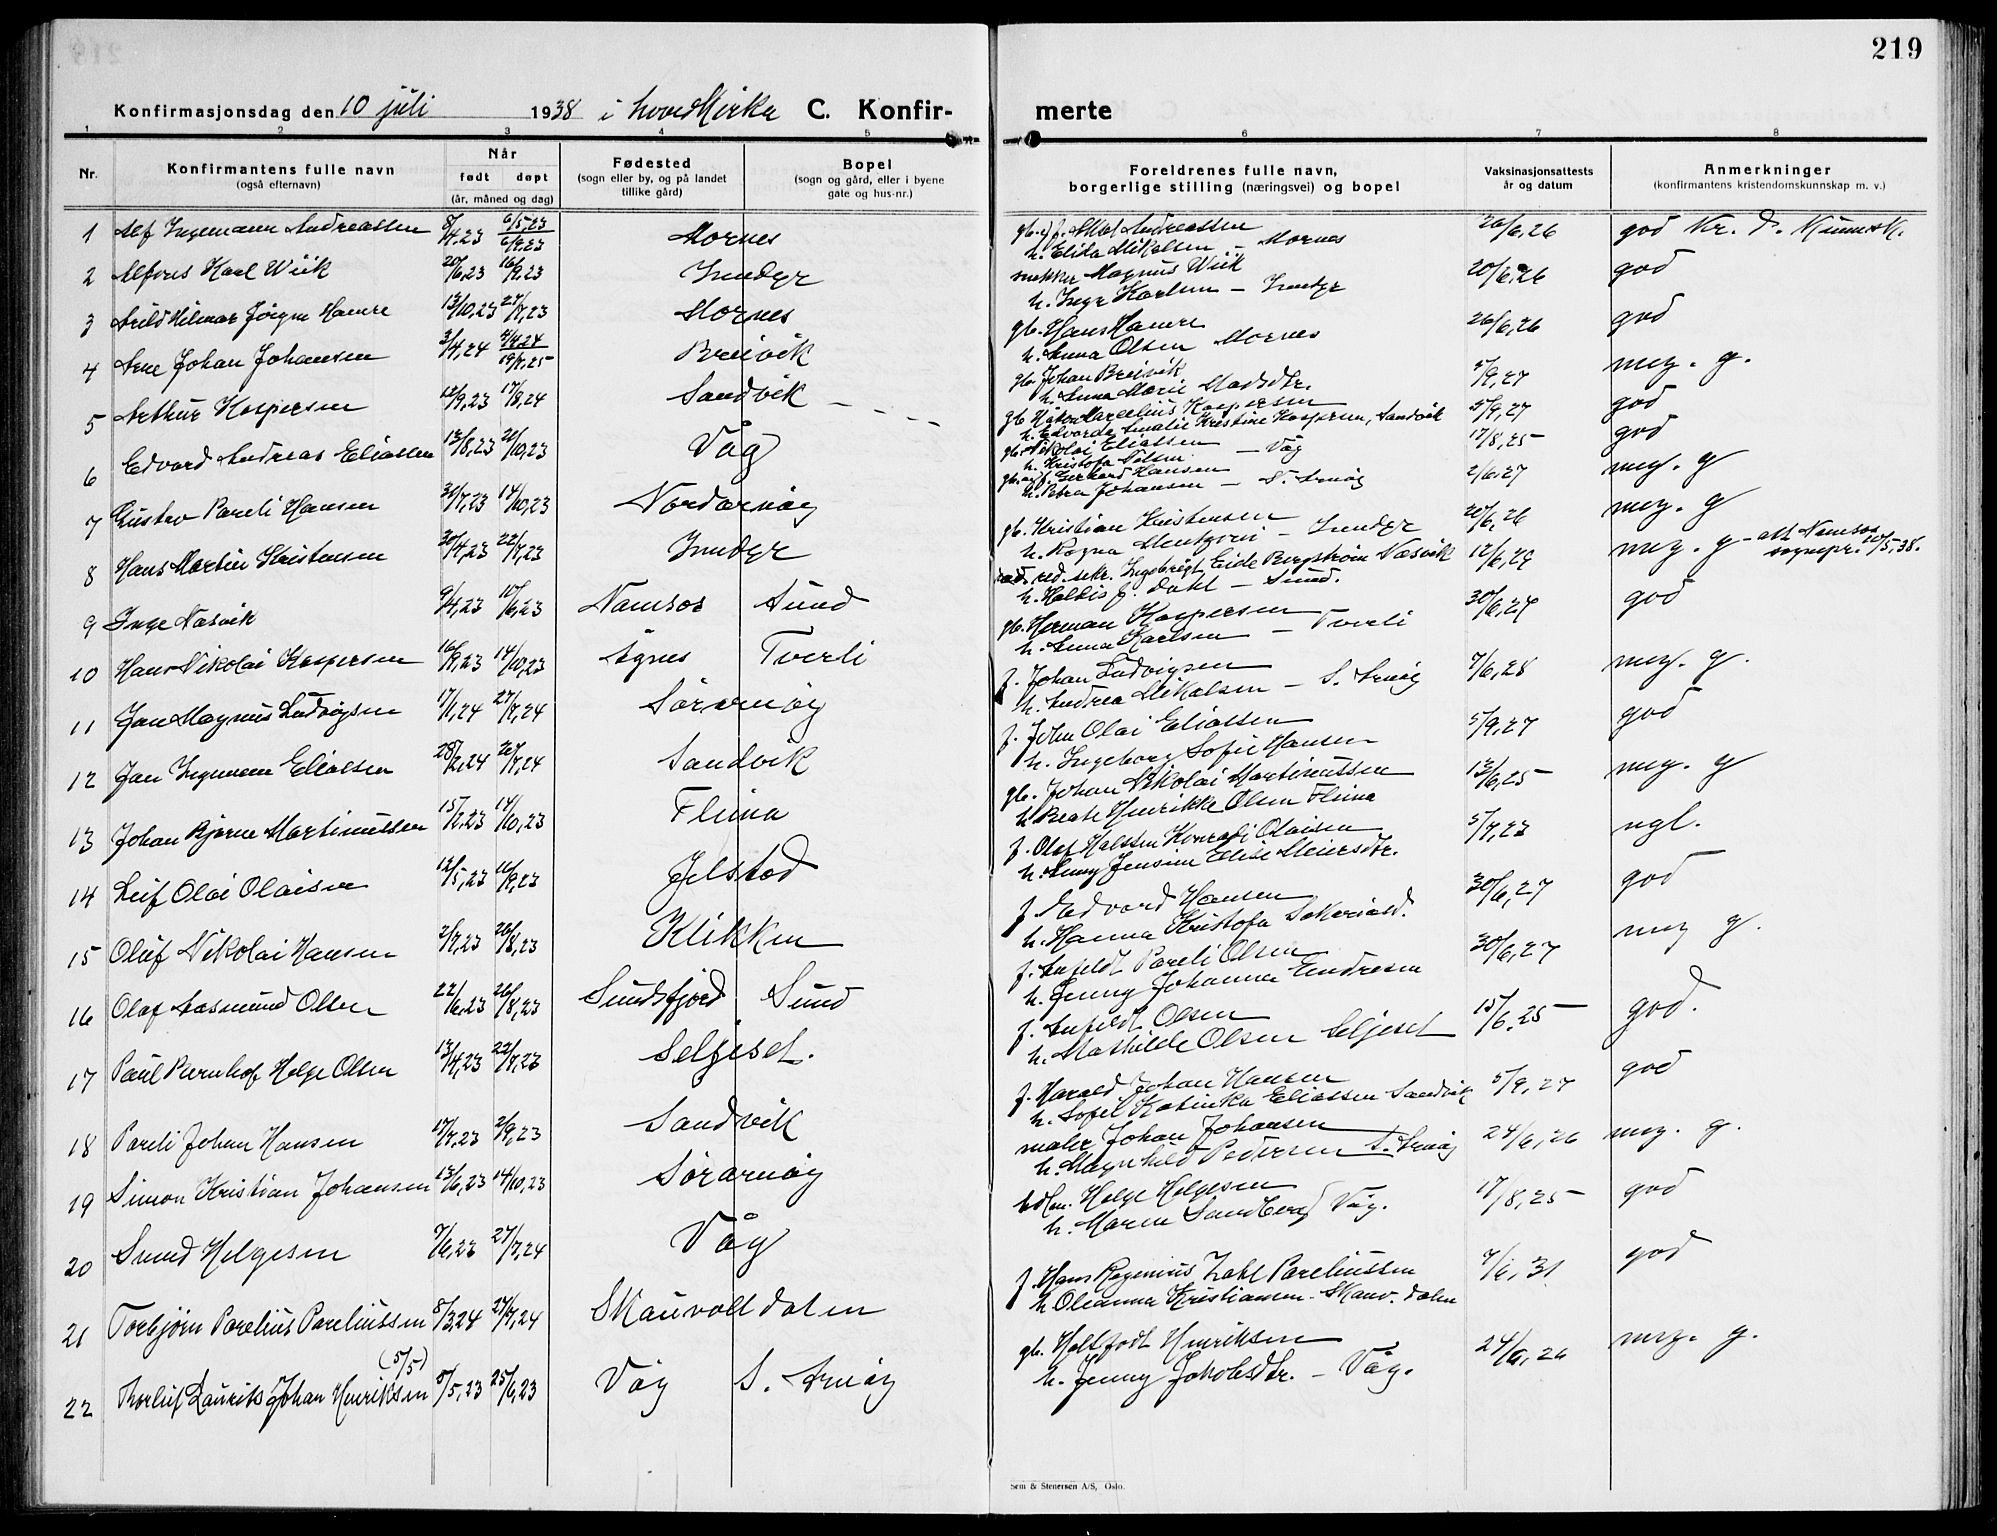 219
Konfirmasjonsdag den 10 juli 1938 i hovedkirka C. Konfir-
merte
1 2 3 4 5 6 7 8
Nr. Konfirmantens fulle navn (også efternavn) Når født døpt (år, måned og dag) Fødested (sogn eller by, og på landet tillike gård) Bopel (sogn og gård, eller i byene gate og hus-nr.)
Foreldrenes fulle navn, borgerlige stilling (næringsvei) og bopel Vaksinasjonsattests år og datum Anmerkninger (konfirmantens kristendomskunnskap m. v.)
1 Alf Ingemann Andreassen 8/4,23 6/5,23 Mornes
Andreassen 26/6,26 god Kr. d.
h. Elida Mikalsen - Mornes
2 Alfons Karl Wiik 20/6,23 16/9,23 Inndyr
Magnus Wiik 20/6,26 god
h. Inga Karlsen - Inndyr
3 Arild Hilmar Jörgen Hamre 13/10,23 Mornes
gb. Hans Hamre 26/6,26 god
h. Anna Olsen Mornes
4 Arne Johan Johansen 3/4,24 19/7,25 Breivik
gb. Johan Breivik 5/9,27 meg. g.
h. Anna Marie Madsdtr.
5 Arthur Kaspersen 12/9,23 17/8,24 Sandvik
gb. Håkon Marcelius Kaspersen 5/9,27 god
h. Edvarda Amalie Kristine Kaspersen, Sandvik
6 Edvard Andreas Eliassen 13/8,23 21/10,23 Våg
gb. Nikolai Eliassen - Våg 17/8,25 god
h. Kristofa Nilsen
7 Gustav Pareli Hansen 31/7,23 14/10,23 Nordarnöy
gb. Gerhard Hansen 2/6,27 meg. g
h. Petra Johansen - S. Arnöy
8 Hans Martin Kristensen 30/4,23 22/7,23 Inndyr
gb. Kristian Kristensen 20/6,26 meg. g
h. Ragna - Inndyr
9 Inge Næsvik 9/4,23 17/6,23 Namsos Sund
red. sekr. Ingebrigt Eide Bergström Næsvik 12/6,29 meg. g - att Namsos sognepr. 10/5,38.
h. Haldis f. Dahl - Sund.
10 Hans Nikolai Kaspersen 16/9,23 14/10,23 Agnes Tverli
gb. Herman Kaspersen 30/6,27 god
h. Anna Karlsen - Tverli
11 Jan Magnus Ludvigsen 17/1,24 27/7,24 Sörarnöy
f. Johan Ludvigsen 7/6,28 meg. g.
h. Andrea Mikalsen - S. Arnöy
12 Jan Ingemann Eliassen 28/2,24 20/7,24 Sandvik
f. John Olai Eliassen 5/9,27 god
h. Ingeborg Sofie Hansen
13 Johan Bjarne Martinussen 15/2,23 14/10,23 Fleina
gb. Johan Nikolai Martinussen 13/6,25 meg. g
h. Beate Henrikke Olsen Fleina
14 Leif Olai Olaisen 12/5,23 16/9,23 Jelstad
f. Olaf Halsten Konradi Olaisen 5/7,23 ngl.
h. Anny Jensine Elise Meiersdtr.
15 Oluf Nikolai Hansen 2/7,23 26/8,23 Klikken
f. Edvard Hansen 30/6,27 god
h. Hanna Kristofa Sakariasd.
16 Olaf Aasmund Olsen 22/6,23 26/8,23 Sundsfjord Sund
f. Anfeldt Pareli Olsen 30/6,27 meg g.
h. Jenny Johanna Endresen
17 Paul Bernhof Helge Olsen 13/4,23 22/7,23 Seljeset.
f. Anfeldt Olsen 15/6,25 god.
h. Mathilde Olsen Seljeset
18 Pareli Johan Hansen 17/7,23 2/9,23 Sandvik
f. Harald Johan Hansen 5/9,27 god
h. Sofie Katinka Eliassen Sandvik
19 Simon Kristian Johansen 13/6,23 14/10,23 Sörarnöy
maler Johan Johansen 24/6,26 meg. g.
h. Magnhild Pedersen S. Arnöy
20 Svend Helgesen 7/6,23 27/7,24 Våg
Helge Helgesen 17/8,25 god
h. Maren Sandberg Våg.
21 Torbjørn Parelius Pareliussen 8/3,24 27/7,24 Skauvolldalen
f. Hans Ragenius Zahl Pareliussen 7/6,31 god
h. Olianna Kristiansen - Skauv.dalen
(5/5)
22 Thorleif Laurits Johan Henriksen 5/5,23 25/6,23 Våg S. Arnöy
gb. Hallfodt Henriksen 24/6,26 meg. g.
h. Jenny Jakobsdtr. - Våg.
Sem & Stenersen A/S, Oslo.